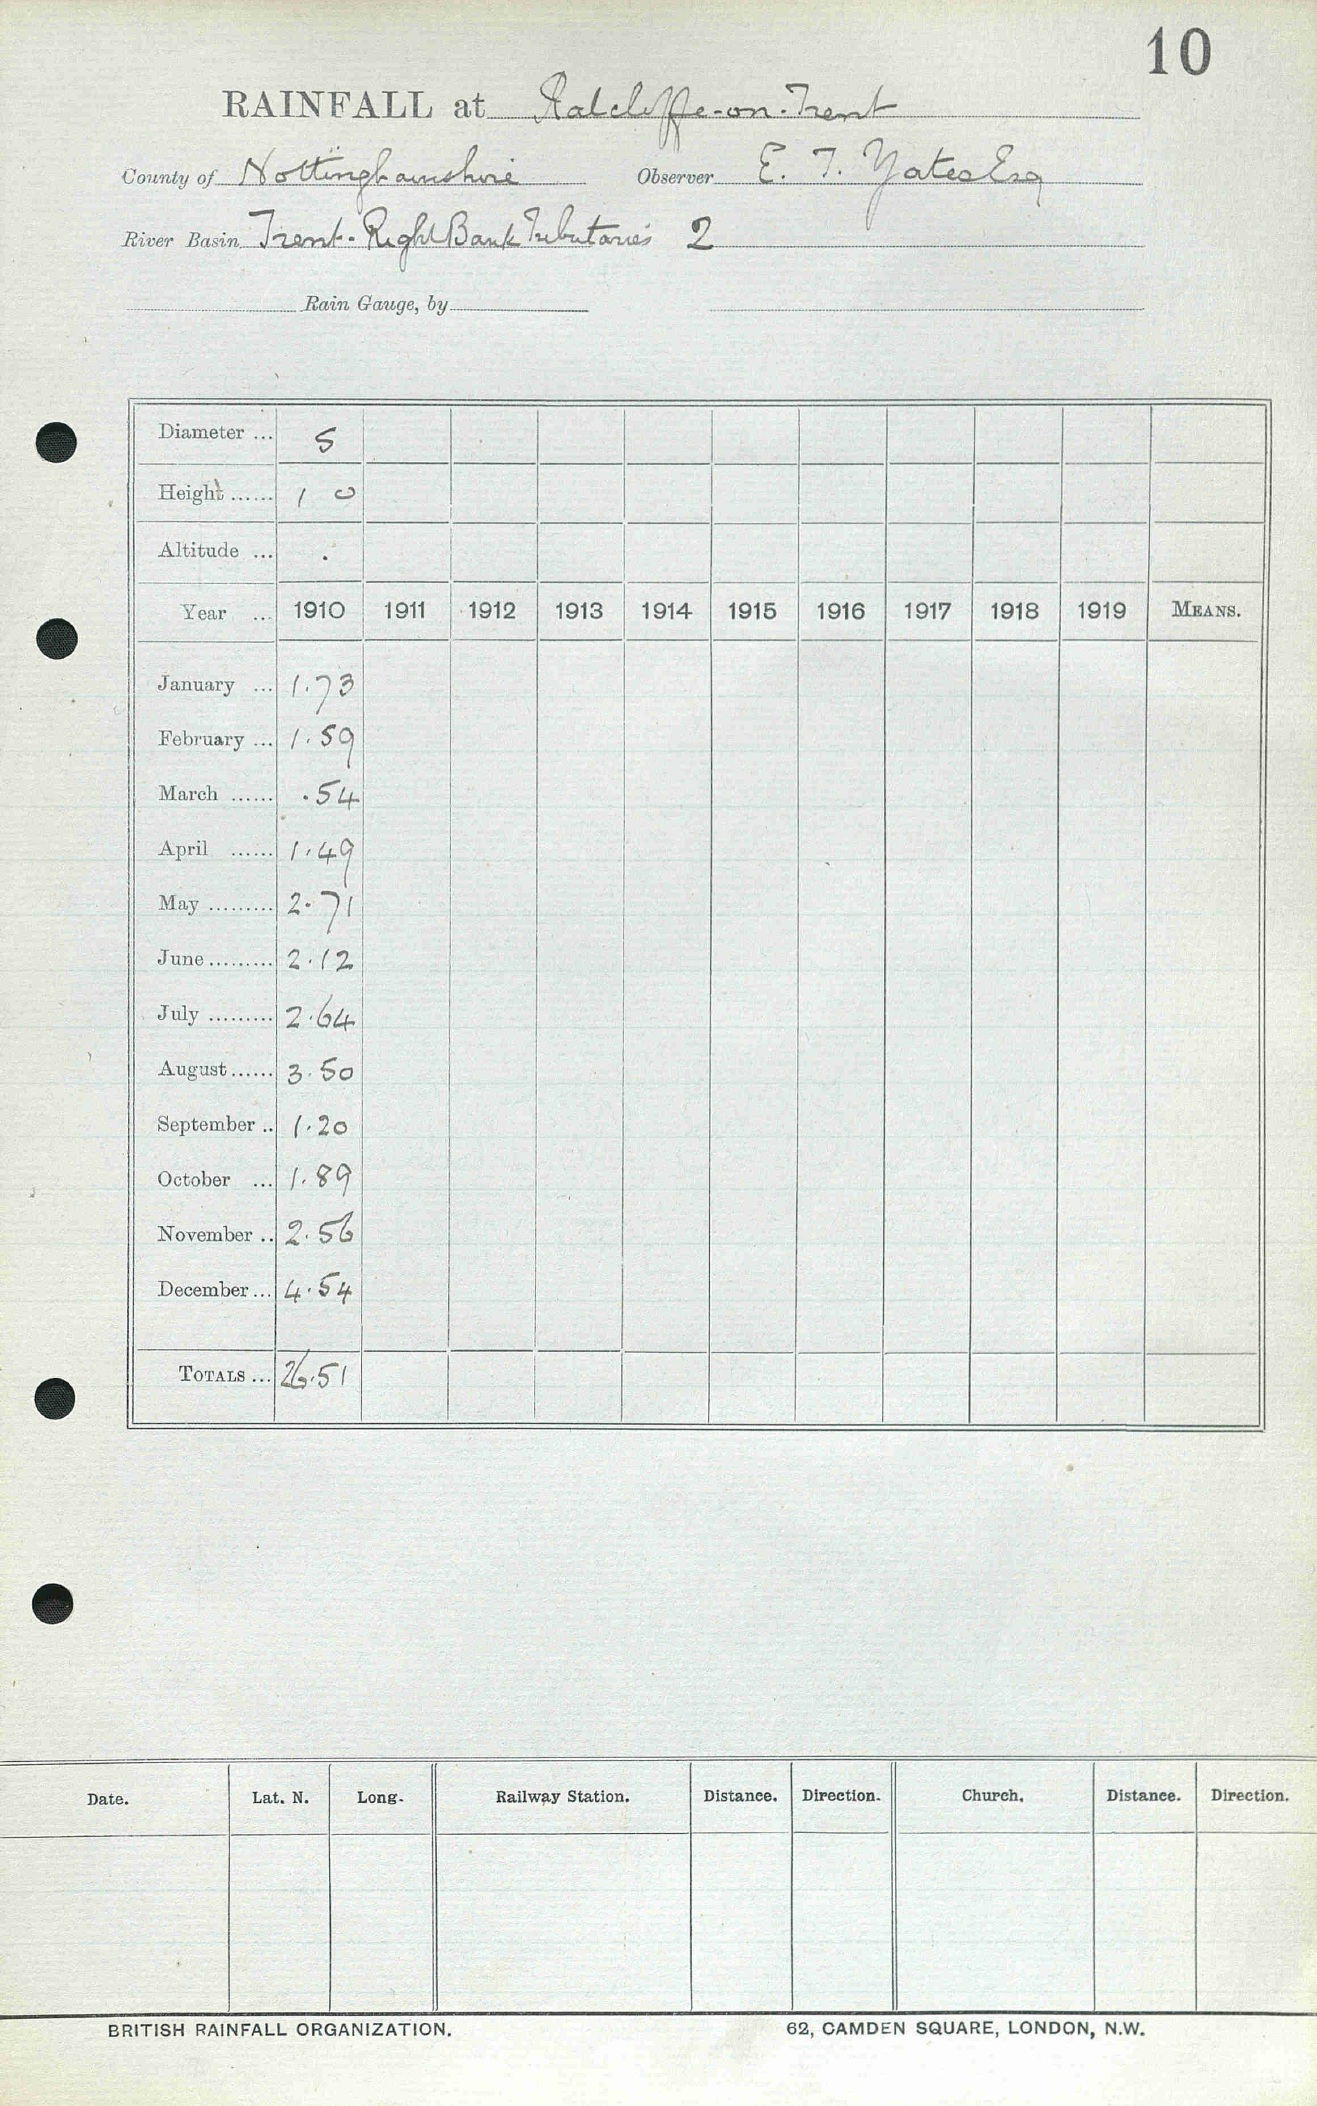 10
RAINFALL at Ratcliffe-on-Trent
County of Nottinghamshire Observer E. T. Yates Esq
River Basin Trent-Right Bank Tributaries 2
Rain Gauge, by
Diameter ... 5
Height ...... 1 0
Altitude ... .
Year ... 1910 1911 1912 1913 1914 1915 1916 1917 1918 1919 MEANS.
January ... 1.73
February ... 1.59
March ...... .54
April ...... 1.49
May ......... 2.71
June ......... 2.12
July ......... 2.64
August ...... 3.50
September .. 1.20
October ... 1.89
November .. 2.56
December ... 4.54
TOTALS ... 26.51
Date. Lat. N. Long. Railway Station. Distance. Direction. Church. Distance. Direction.
BRITISH RAINFALL ORGANIZATION. 62, CAMDEN SQUARE, LONDON, N.W.